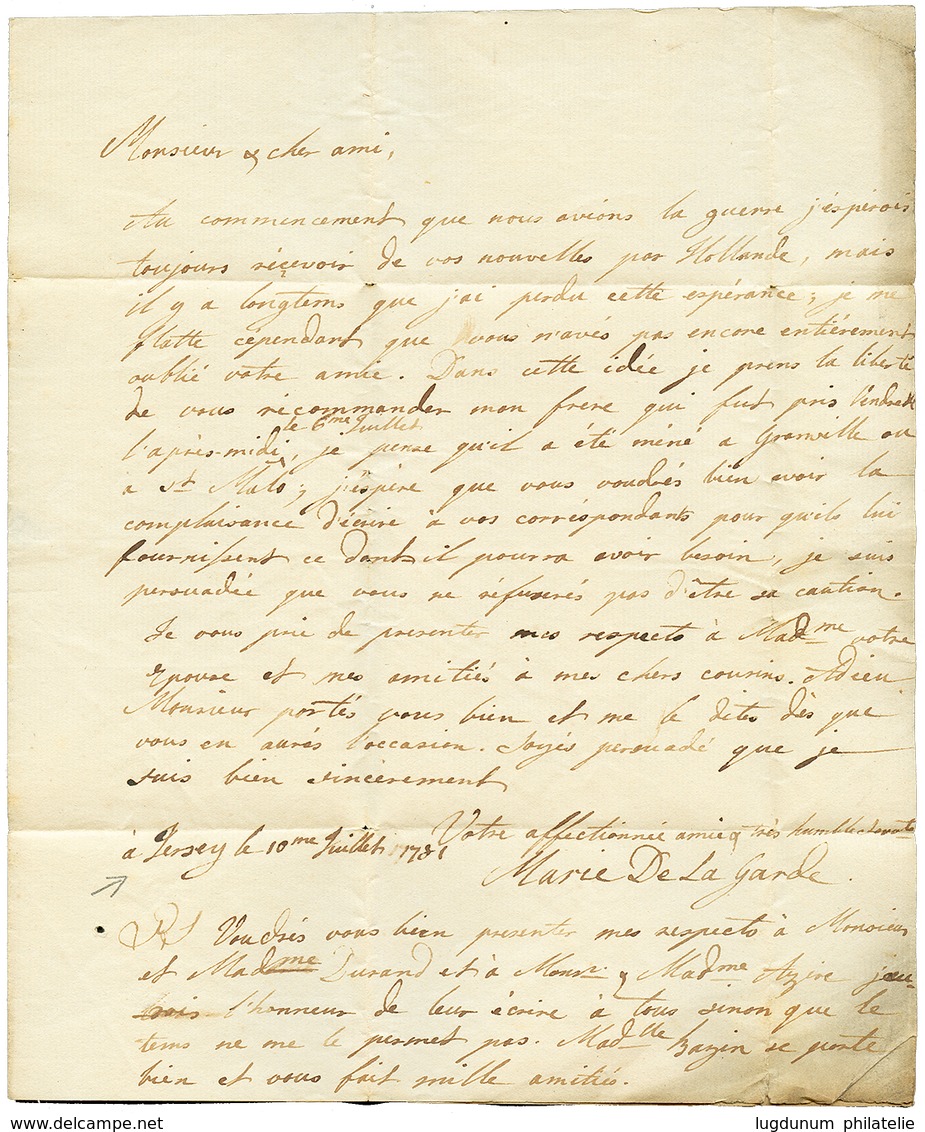 Monsieur & cher ami,
Au commencement que nous avions la guerre j'éspérois
toujours récevoir de vos nouvelles par Hollande, mais
il y a longtems que j'ai perdu cette espérance; je me
flatte cépendant que vous n'avés pas encore entiérement
oublié votre amie. Dans cette idée je prens la liberté
de vous récommander mon frere qui fut pris
le 6me Juillet
l'aprés-midi, je pense qu'il a été méné a Granville ou
a St Malo; j'éspére que vous voudrés bien avoir la
complaisance d'écrire à vos corréspondants pour qu'ils lui
fournissent ce dont il pourra avoir besoin, je suis
persuadée que vous ne réfuserés pas d'être sa caution.
Je vous prie de presenter mes respects à Madme votre
Epouse et mes amitiés à mes chers cousins. Adieu
Monsieur portés vous bien et me le dites dès que
vous en aurés l'occasion. Soyés persuadé que je
suis bien sincérement
Votre affectionnée amie & très humble
à Jersey le 10me Juillet 1781
Marie De La Garde.
PS Voudrés vous bien presenter mes respects à Monsieur
et Madme Durand et à Monsr & Madme j'au-
rois l'honneur de leur écrire à tous sinon que le
tems ne me le permet pas. Madlle Bazin se porte
bien et vous fait mille amitiés.
www.delcampe.net
lugdunum philatelie